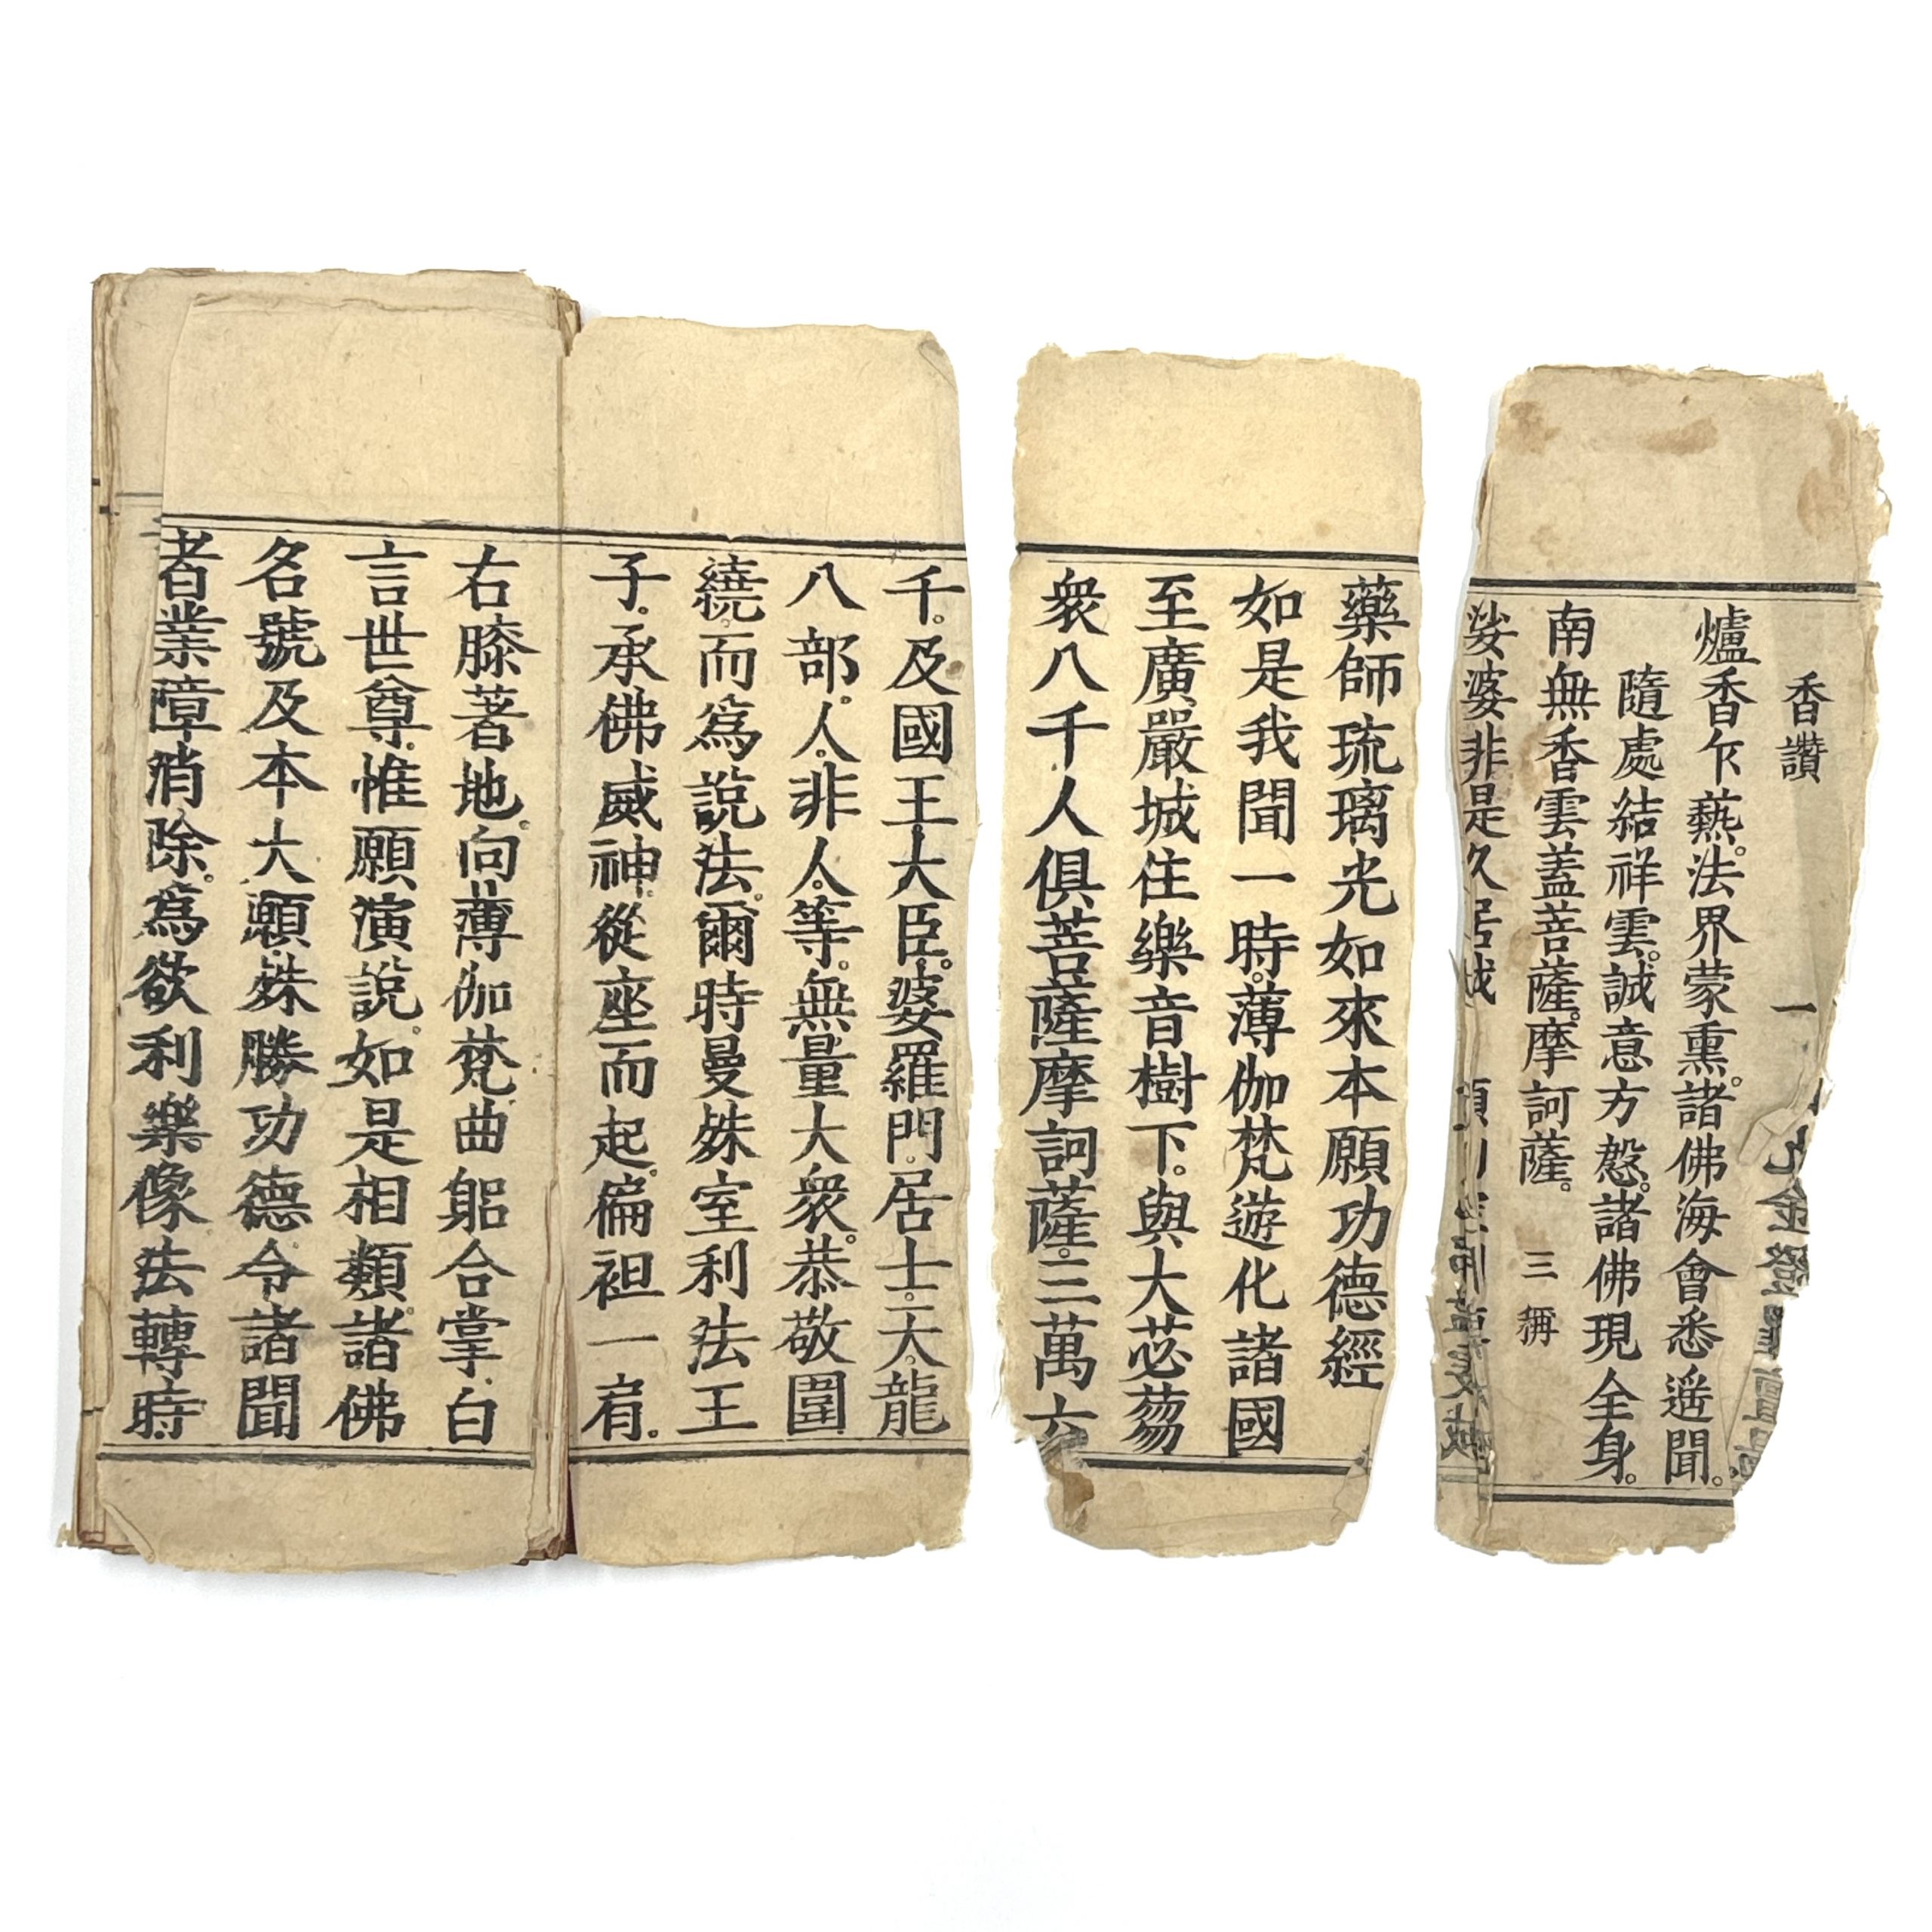 香讚
一
爐香乍爇。法界蒙熏。諸佛海會悉遙聞。
隨處結祥雲。誠意方慇。諸佛現全身。
南無香雲蓋菩薩。摩訶薩。三稱
娑婆非是久居
藥師琉璃光如來本願功德經
如是我聞一時。薄伽梵遊化諸國
至廣嚴城住樂音樹下。與大苾芻
衆八千人俱菩薩摩訶薩。三萬六
千。及國王大臣。婆羅門。居士。天。龍
八部。人。非人。等。無量大衆。恭敬圍
繞。而爲說法。爾時曼殊室利法王
子。承佛威神。從座而起。偏袒一肩。
右膝著地。向薄伽梵曲躳合掌。白
言世尊。惟願演說。如是相類。諸佛
名號及本大願。殊勝功德。令諸聞
者業障消除。爲欲利樂像法轉時